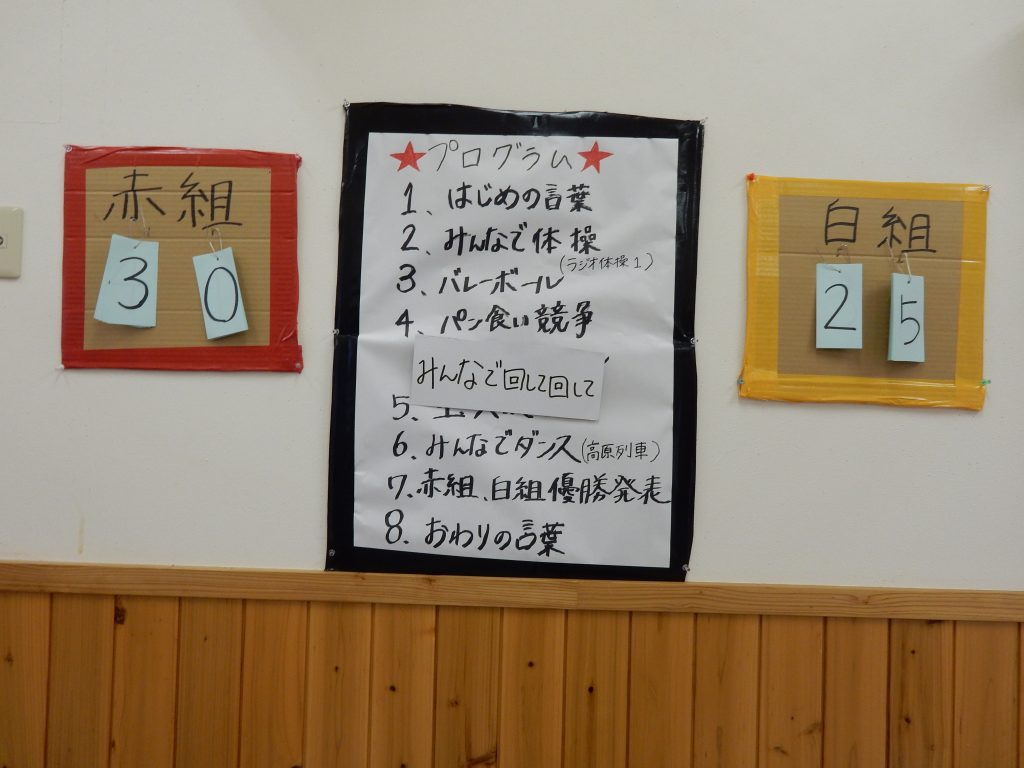 赤組
30
★プログラム★
1、はじめの言葉
2、みんなで体操
(ラジオ体操1)
3、バレーボール
4、パン食い競争
みんなで回して回して
5、
6、みんなでダンス(高原列車)
7、赤組、白組優勝発表
8、おわりの言葉
白組
25